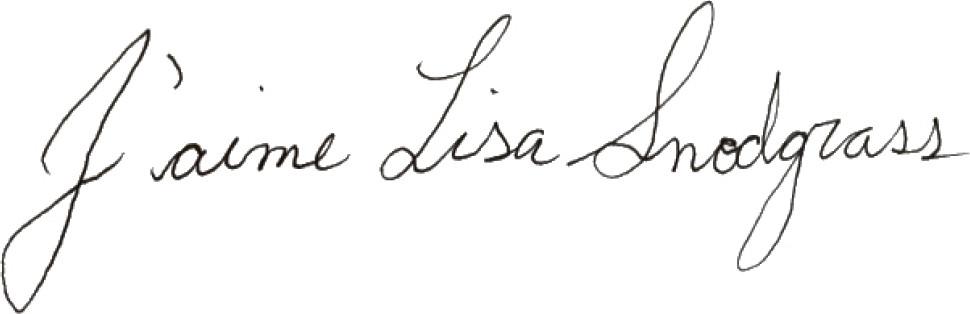 J'aime Lisa Snodgrass